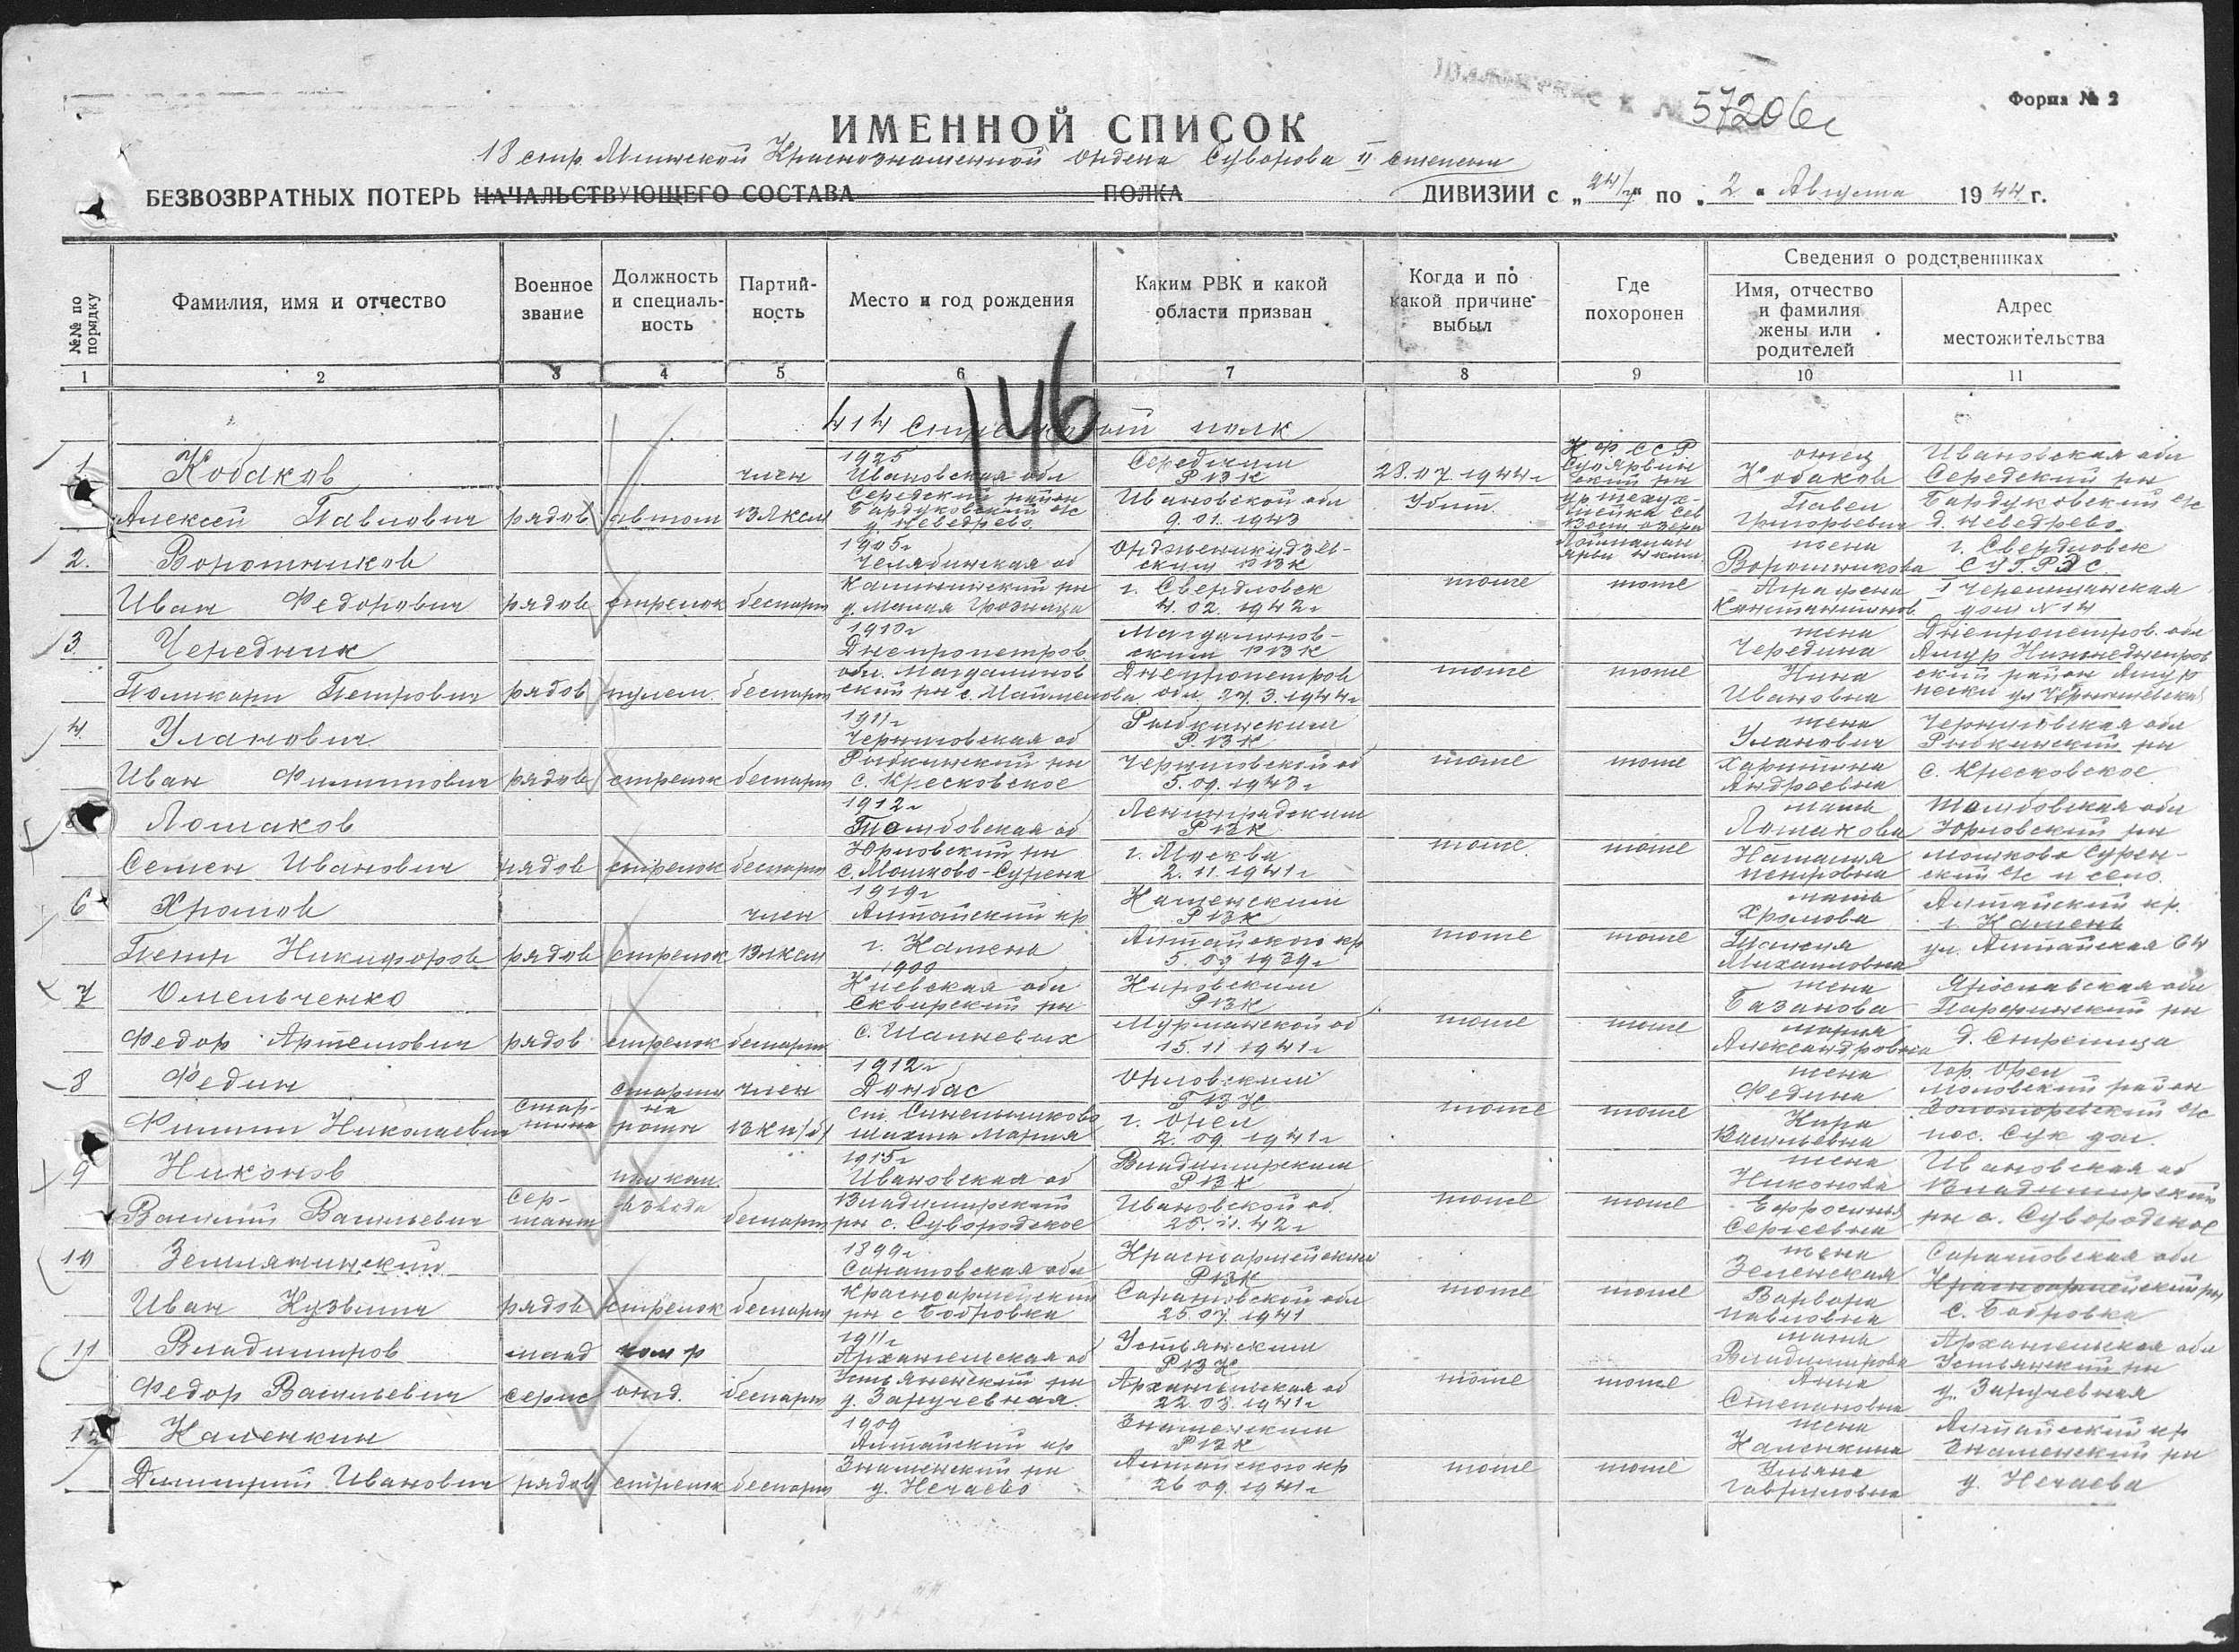 57206с
Форма № 2
ИМЕННОЙ СПИСОК
18 стр. Мгинской Краснознаменной ордена Суворова II степени
БЕЗВОЗВРАТНЫХ ПОТЕРЬ НАЧАЛЬСТВУЮЩЕГО СОСТАВА ПОЛКА ДИВИЗИИ с „24/7“ по „2“ Августа 1944 г.
№№ по порядку
Фамилия, имя и отчество
Военное звание
Должность и специальность
Партийность
Место и год рождения
Каким РВК и какой области призван
Когда и по какой причине выбыл
Где похоронен
Сведения о родственниках
Имя, отчество и фамилия жены или родителей
Адрес местожительства
1 2 3 4 5 6 7 8 9 10 11
146
414 Стрелковый полк
1 Кобаков
Алексей Павлович
рядов
автом
член
ВЛКСМ
1925
Ивановская обл
Середский район
д. Неведрево
Середским
РВК
Ивановской обл
9.01.1943
28.07.1944г
Убит
К Ф ССР
отец
Кобаков
Павел
Григорьевич
Ивановская обл
Середский рн
д. Неведрево
2. Воротников
Иван Федорович
рядов
стрелок
беспарт
1905г
Челябинская об
д. Малая Грозница
Орджоникидзев-
ским РВК
г. Свердловск
4.02.1942г
тоже
тоже
жена
Воротникова
Аграфена
Константинов
г. Свердловск
СУГРЭС
дом № 14
3 Чередник
Поликарп Петрович
рядов
пулем.
беспарт
1910г
Днепропетров
обл. Магдалинов
ский рн
Магдалинов-
ским РВК
Днепропетров
обл 27.3.1944г
тоже
тоже
жена
Чередина
Нина
Ивановна
Днепропетров. обл
Амур Нижнеднепров
ский район
4. Уланович
Иван Филиппович
рядов
стрелок
беспарт
1911г
Черниговская об
Рыбкинский рн
с. Кресковское
Рыбкинским
РВК
Черниговской об
5.09.1943г
тоже
тоже
жена
Уланович
Харитина
Андреевна
Черниговская обл
Рыбкинский рн
с. Кресковское
Ломаков
Семен Иванович
рядов
стрелок
беспарт
1912г
Тамбовская об
Юрловский рн
с. Мошково-Сурена
Ленинградским
РВК
г. Москва
2.11.1941г
тоже
тоже
мать
Ломакова
Наталия
Петровна
Тамбовская обл
Юрловский рн
Мошково Сурен-
ский с/с и село
6 Хромов
Петр Никифоров
рядов
стрелок
член
ВЛКСМ
1919г
Алтайский кр
г. Камень
Каменским
РВК
Алтайского кр
5.09 1939г
тоже
тоже
мать
Хромова
Михайловна
Алтайский кр.
г. Камень
ул. Алтайская 64
7 Омельченко
Федор Артемович
рядов
стрелок
беспарт
1900
Киевская обл
Сквирский рн
Кировским
РВК
Мурманской об
15.11 1941г
тоже
тоже
жена
Базанова
Мария
Александровна
Ярославская обл
д. Стрелица
8 Федин
Филипп Николаевич
стар-
шина
старши
на
роты
член
ВКП/б/
1912г
Донбас
ст. Синельниково
шахта Мария
Орловским
г. Орел
2.09.1941г
тоже
тоже
жена
Федина
Кира
Васильевна
гор. Орел
9 Никонов
Василий Васильевич
Сер-
жант
взвода
беспарт
1915г
Ивановская об
Владимирский
рн с. Сувородское
Владимирским
РВК
Ивановской об.
тоже
тоже
жена
Никонова
Ефросинья
Сергеевна
Ивановская об
Владимирский
рн с. Сувородское
10 Землянинский
Иван Кузьмич
рядов
стрелок
беспарт
1899г.
Саратовская обл
Красноармейский
рн с Бобровка
Красноармейским
РВК
Саратовской обл
25.07.1941
тоже
тоже
жена
Зеленская
Варвара
Павловна
Саратовская обл
Красноармейский рн
с. Бобровка
11 Владимиров
Федор Васильевич
млад
серж
ком р
отд.
беспарт
1911г
Архангельская об
Устьянский рн
д. Заручевная
Устьянским
РВК
Архангельская об
22.03.1941г
тоже
тоже
мать
Владимирова
Анна
Степановна
Архангельская обл
Устьянский рн
д. Заручевная
12 Каленкин
Димитрий Иванович
рядов
стрелок
беспарт
1909
Алтайский кр
Знаменский рн
д. Нечаево
Знаменским
РВК
Алтайского кр
26 09.1941г
тоже
тоже
жена
Каленкина
Ульяна
Гавриловна
Алтайский кр
Знаменский рн
д. Нечаева